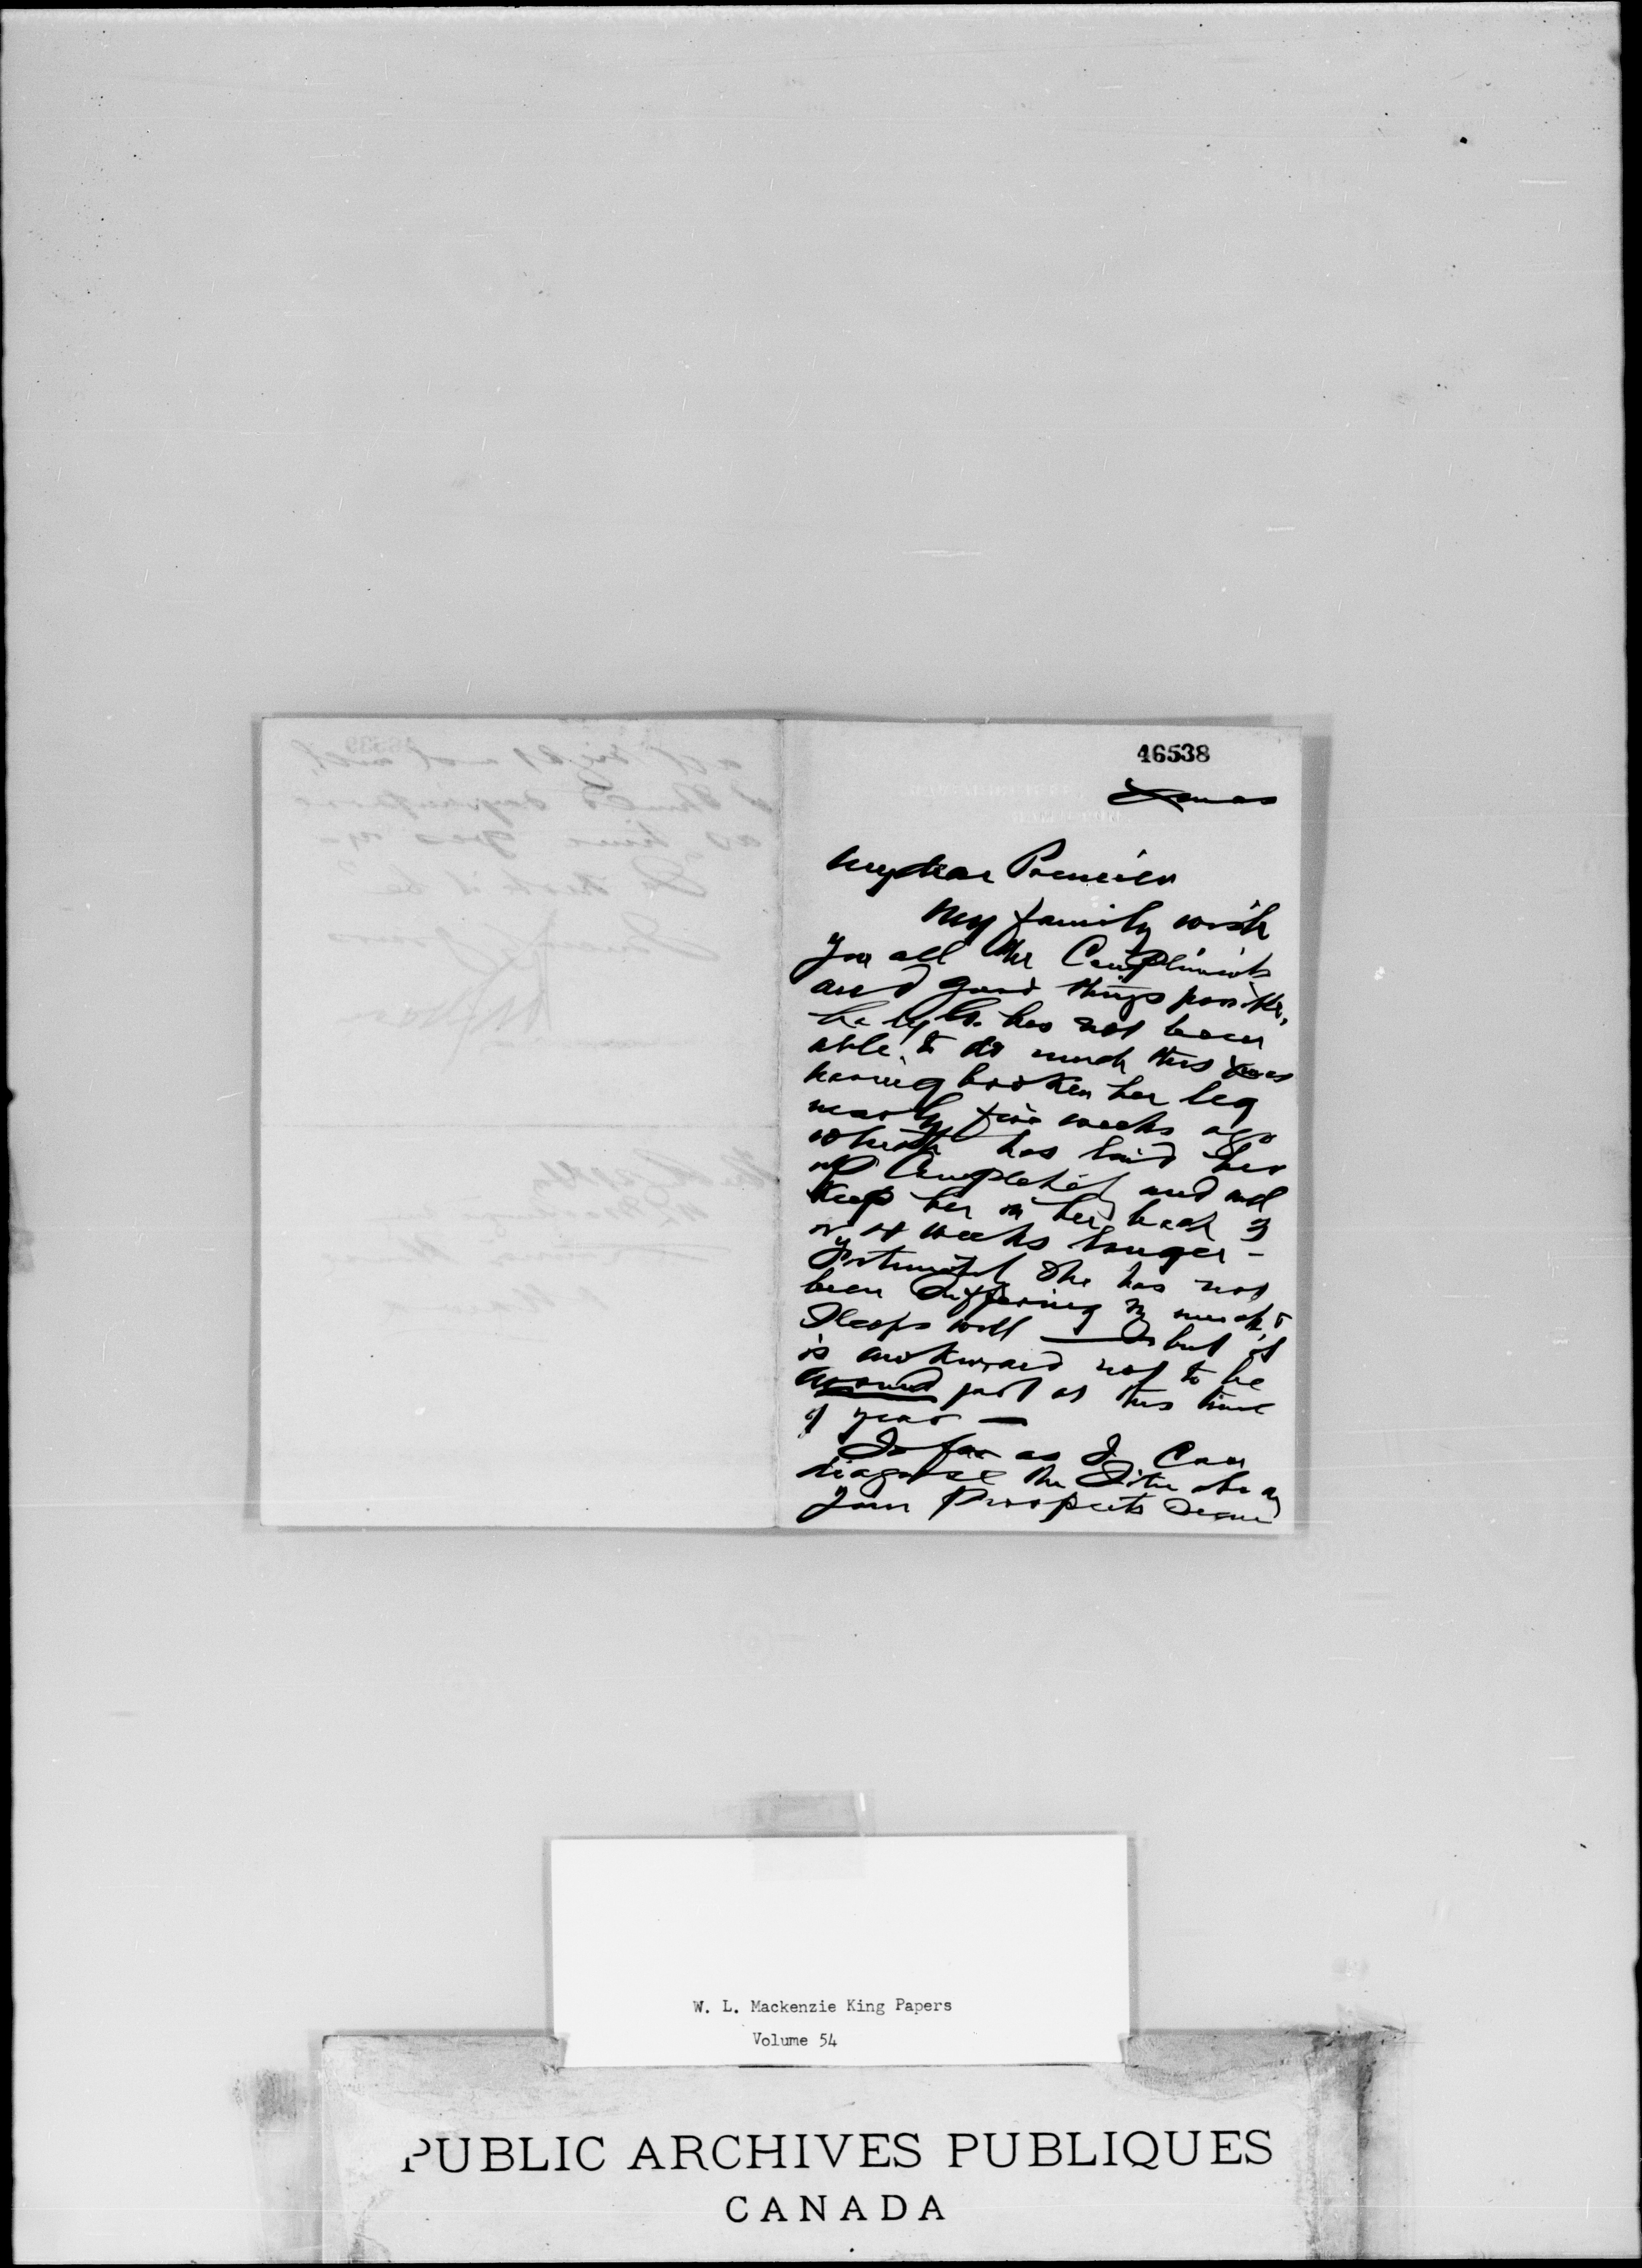 46538
Xmas
My dear Premier
My family wish
you all the Compliments
and good things possible,
has not been
able to do much this Xmas
having broken her leg
nearly five weeks ago
which has laid her
up Completely and will
keep her on her back 3
or 4 weeks longer -
Fortunately she has not
been suffering so much &
sleeps well — but it
is awkward not to be
around just at this time
of year —
So far as I Can
diagnose the Situation
your Prospects Seem
W. L. Mackenzie King Papers
Volume 54
PUBLIC ARCHIVES PUBLIQUES
CANADA